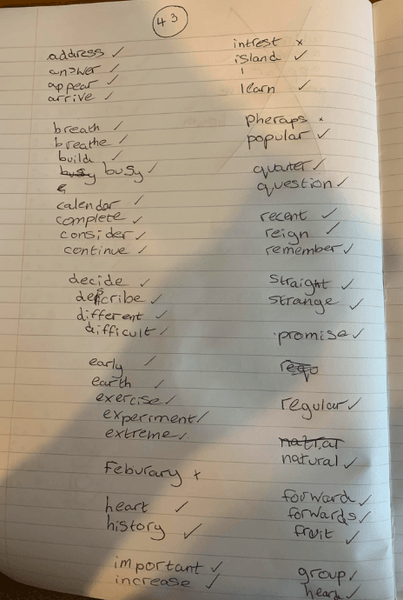 43
address ✓
answer ✓
appear ✓
arrive ✓
breath ✓
breathe ✓
build ✓
busy busy ✓
calendar ✓
complete ✓
consider ✓
continue ✓
decide ✓
describe ✓
different ✓
difficult ✓
early ✓
earth ✓
exercise ✓
experiment ✓
extreme ✓
Feburary x
heart ✓
history ✓
important ✓
increase ✓
intrest x
island ✓
learn ✓
Pheraps x
popular ✓
quarter ✓
question ✓
recent ✓
reign ✓
remember ✓
straight ✓
strange ✓
promise ✓
regular ✓
natural ✓
forward ✓
forwards ✓
fruit ✓
group ✓
heard ✓